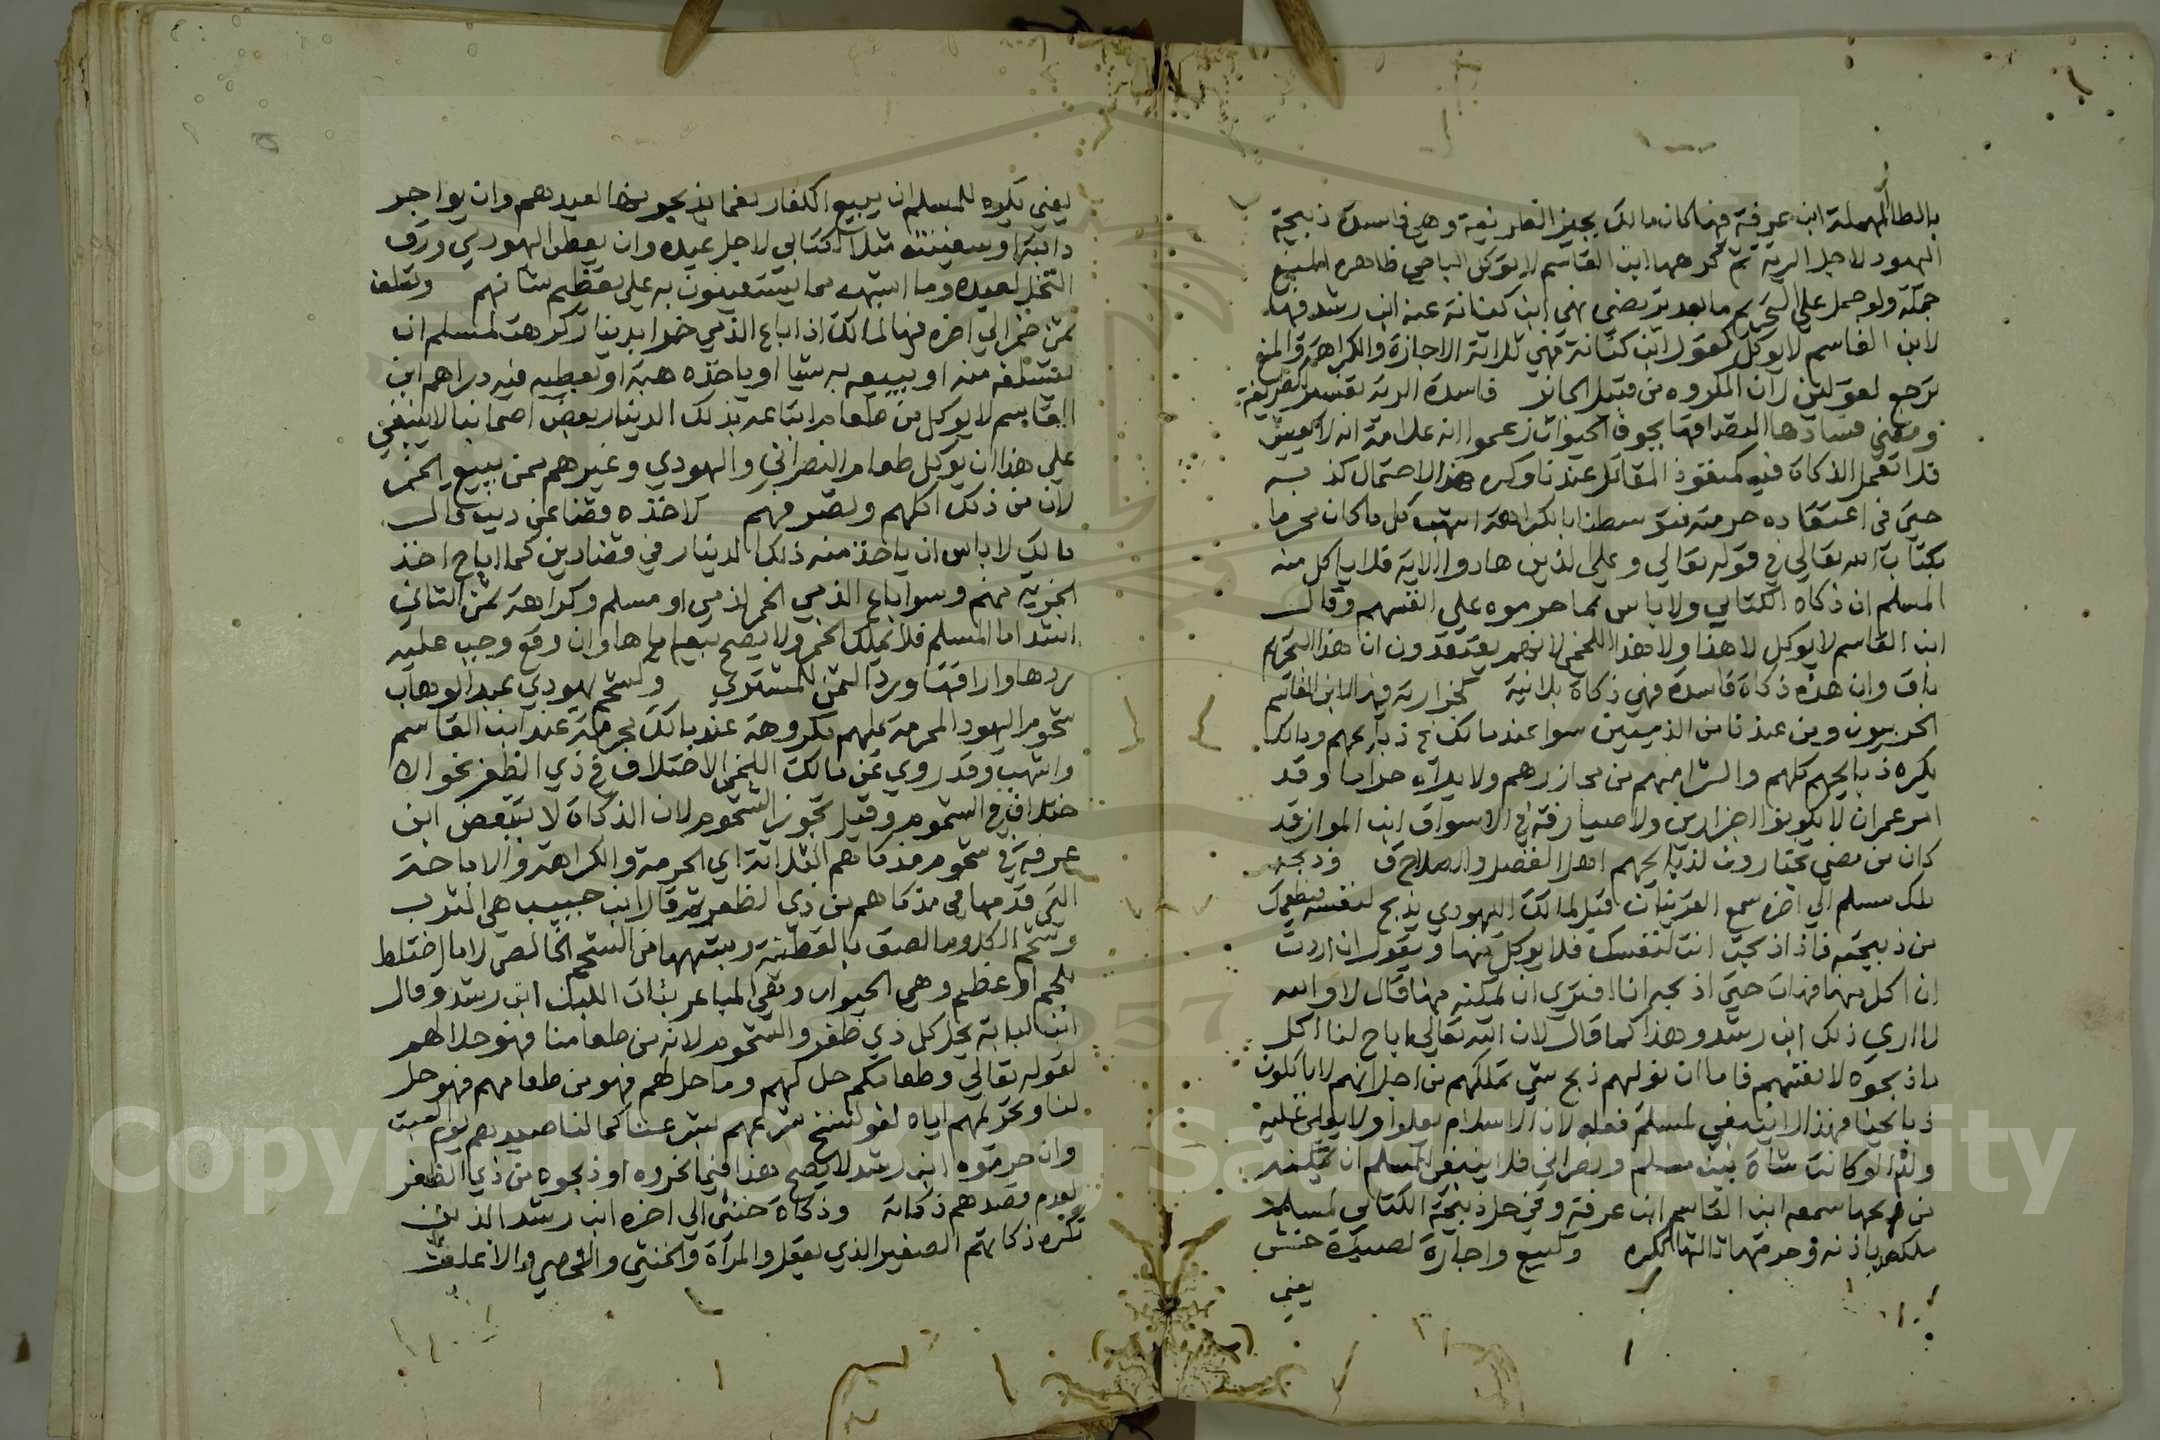 بالطا المهملة ابن عرفة فيها كان مالك يجيز الطريفة وهي فاسدة ذبيحة
اليهود لاجل الرية ثم كرهها ابن القاسم لا يوكل الباجي ظاهره المنع
جملة ولو حمل على التحريم ما بعد نهى ابن كنانة عنه ابن رشد فيها
لابن القاسم لا يوكل كقول ابن كنانة فهي ثلاثة الاجازة والكراهة والمنع
ترجع لقولين لان المكروه من قبيل الجائز فاسدة الرية تفسير للطريفة
ومعنى فسادها التصاقها بجوف الحيوان زعموا انه علامة انه لا يعيش
فلا تعمل الذكاة فيه كمنفوذ المقاتل عندنا وكره هذا لاحتمال كذبه
حتى في اعتقاده حرمته فتوسطنا بالكراهة اشهب كل ما كان محرما
بكتاب الله تعالى في قوله تعالى وعلى الذين هادوا الاية فلا ياكل منه
المسلم ان ذكاه الكتابي ولا باس بما حرموه على انفسهم وقال
ابن القاسم لا يوكل لا هذا ولا هذا اللخمي لانهم يعتقدون ان هذا التحريم
باق وان هذه ذكاة فاسدة فهي ذكاة بلا نية كجزارته فيها لابن القاسم
الحربيون ومن عندنا من الذميين سوا عند مالك في ذبايحهم ومالك
يكره ذبايحهم كلهم والشرا منهم من مجازرهم ولا يراه حراما وقد
امر عمر ان لا يكونوا جزارين ولا صيارفة في الاسواق ابن المواز قد
كان من مضى يختارون لذبايحهم اهل الفضل والصلاح وذبحه
ملك مسلم الى اخره سمع القرينان قيل لمالك اليهودي يذبح لنفسه فيطعمك
من ذبيحته فاذا ذبحت انت لنفسك فلا يوكل منها ويقول ان اردت
ان اكل منها فهات حتى اذبح انا افترى ان نمكنه منها قال لا والله
لا ارى ذلك ابن رشد وهذا كما قال لان الله تعالى اباح لنا اكل
ما ذبحوه لانفسهم فاما ان نولهم ذبح شي نملكهم من اجل انهم لا ياكلون
ذبايحنا فهذا لا ينبغي لمسلم فعله لان الاسلام يعلوا ولا يعلى عليه
ولذا لو كانت شاة بين مسلم ونصراني فلا ينبغي لمسلم ان يمكنه
من ذبحها سمعه ابن القاسم ابن عرفة وفي حل ذبيحة الكتابي لمسلم
ملكه باذنه وحرمتها ثالثها تكره وكبيع واجارة لعبده حنش
يعني
يعني يكره للمسلم ان يبيع الكفار نعما يذبحونها لعيدهم وان يواجر
دابته او سفينته مثلا لكتابي لاجل عيده وان يعطي اليهودي ورق
النخل لعيده وما اشبهه مما يستعينون به على تعظيم شانهم وتسلف
ثمن خمر الى اخره فيها لمالك اذا باع الذمي خمرا بدينار كرهت لمسلم ان
يتسلفه منه او يبيعه به شيا او ياخذه هبة او يعطيه فيه دراهم ابن
القاسم لا يوكل من طعام ابتاعه بذلك الدينار بعض اصحابنا لا ينبغي
على هذا ان يوكل طعام النصراني واليهودي وغيرهم ممن يبيع الخمر
لان من ذلك اكلهم وتصرفهم لا اخذه قضا عن دين قال
مالك لا باس ان ياخذ منه ذلك الدينار في قضا دين كما اباح اخذ
الجزية منهم وسوا باع الذمي الخمر لذمي او مسلم وكراهة ثمن الثاني
اشد اما المسلم فلا يملك الخمر ولا يصح بيعه اياها وان وقع وجب عليه
ردها واراقتها ورد الثمن للمشتري وكشحم يهودي عبد الوهاب
شحوم اليهود المحرمة عليهم مكروهة عند مالك محرمة عند ابن القاسم
واشهب وقد روي عن مالك اللخمي الاختلاف في ذي الظفر نحو الا
ختلاف في الشحوم وقيل تجوز الشحوم لان الذكاة لا تتبعض ابن
عرفة في شحوم مذكاهم الثلاثة اي الحرمة والكراهة والاباحة
التي قدمها في مذكاهم من ذي الظفر قال ابن حبيب هي الثرب
وشحم الكلا وما لصق بالقطنة وشبهها من الشحم الخالص لا ما اختلط
بلحم او عظم وهي الحيوان وبقي المباعر بنات اللبن ابن رشد وقال
ابن لبابة يحل كل ذي ظفر والشحوم لانه من طعامنا فهو حل لهم
لقوله تعالى وطعامكم حل لهم وما حل لهم فهو من طعامهم فهو حل
لنا وتحريمهم اياه لغو لنسخ شرعهم بشرعنا كما لنا صيدهم يوم السبت
وان حرموه ابن رشد لا يصح هذا فيما نحروه او ذبحوه من ذي الظفر
لعدم قصدهم ذكاته وذكاة خنثى الى اخره ابن رشد الذين
تكره ذكاتهم الصغير الذي يعقل والمراة والخنثى والخصي والاغلف
Copyright © King Saud University
1957